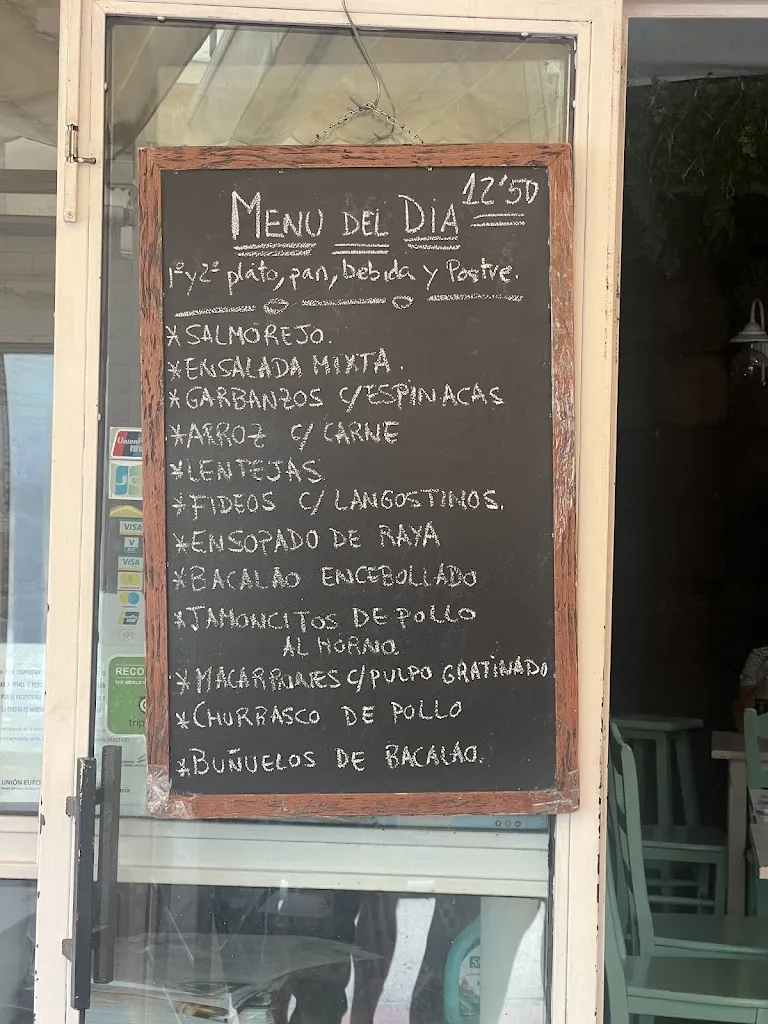 12'50
MENU DEL DIA
1º y 2º plato, pan, bebida y Postre.
*SALMOREJO.
*ENSALADA MIXTA.
*GARBANZOS C/ESPINACAS
*ARROZ C/ CARNE
*LENTEJAS
*FIDEOS C/ LANGOSTINOS.
*ENSOPADO DE RAYA
*BACALAO ENCEBOLLADO
*JAMONCITOS DE POLLO
AL HORNO.
*MACARRONES C/PULPO GRATINADO
*CHURRASCO DE POLLO
*BUÑUELOS DE BACALAO.
VISA
V
VISA
RECO
trip
UNIÓN EURO